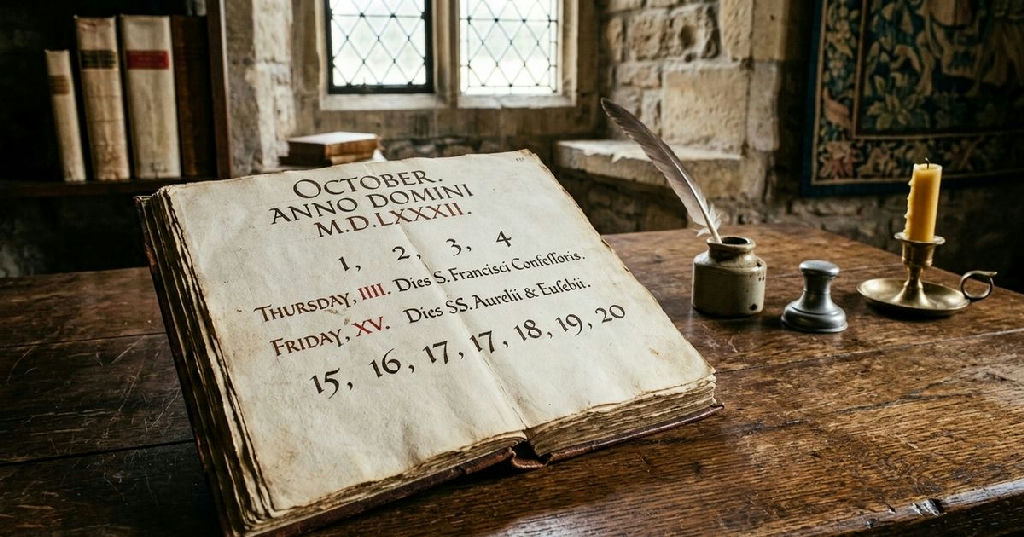 OCTOBER.
ANNO DOMINI
M.D.LXXXII.
1, 2, 3, 4
THURSDAY, IIII. Dies S. Francisci Confeſſoris.
FRIDAY, XV. Dies SS. Aurelii & Euſebii.
15, 16, 17, 17, 18, 19, 20